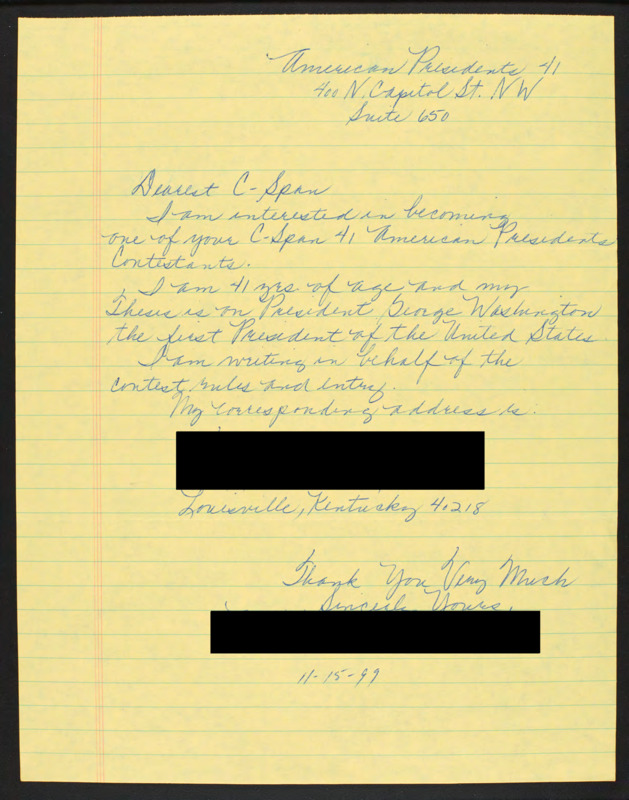 American Presidents 41
400 N. Capitol St. NW
Suite 650
Dearest C-Span
I am interested in becoming
one of your C-Span 41 American Presidents
Contestants.
I am 41 yrs. of age and my
Thesis is on President George Washington
the first President of the United States.
I am writing in behalf of the
contest rules and entry.
My corresponding address is:
Louisville, Kentucky 40218
Thank You Very Much
Sincerly Yours,
11-15-99